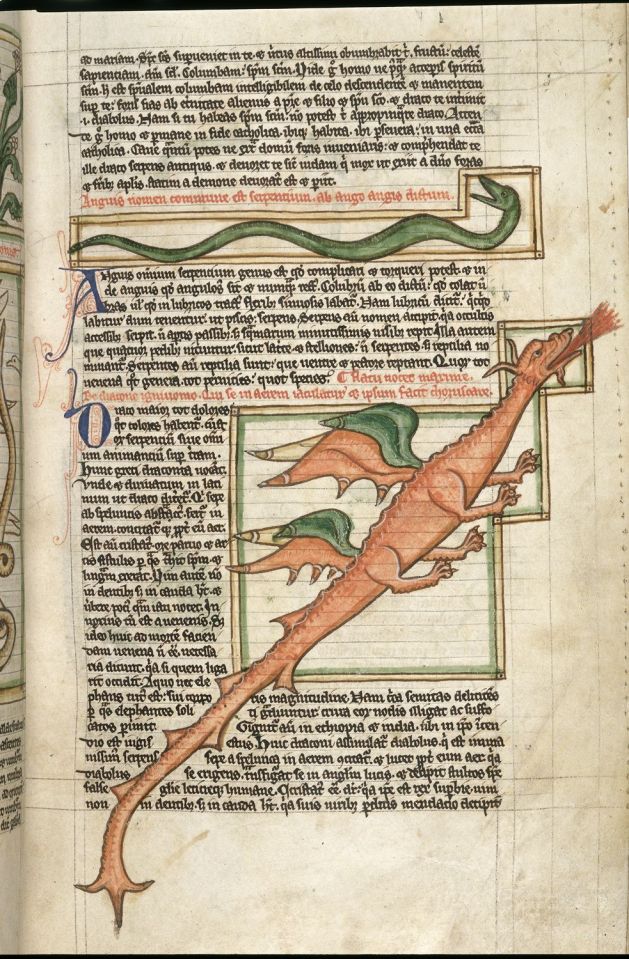 ad mariam. Spc scs superveniet in te. et virtus altissimi obumbrabit t. fructum celeste
sapienciam. dnm scl. Columbam. spm scm. Vide g homo ne accepis spiritum
scm. h est spualem columbam intelligibilem de celo descendente et manentem
sup te. sias ab etnitate alienus a pre et filio et spu sco. et draco te
i. diabolus. Nam si tu habeas spm scm. no potest t appropinqre draco. Atten
te g homo et pmane in fide catholica. ibiq habita. ibi pseuera. in una
catholica. Caue potes ne ext domu foras inueniaris. et comphendat te
ille draco serpens antiqus. et deuoret te sic iudam q mox ut exiit a dno foras
et frib aplis. statim a demone deuorat est et piit.
Anguis nomen commune est serpentium. ab ango angis dictum.
Anguis omnium serpencium genus est qd complicari et torqueri potest. et in
de anguis qd angulosus sit et nunq rect. Colubru ab eo dictu. qd colat u
bras ul qd in lubricos tract flexib sinuosis labat. Nam lubricu dicit. qcqd
labitur dum tenentur. ut piscis. serpens. Serpens au nomen accipit. qa occultis
accessib serpit. n aptis passib. s squamarum minutissimis nisib repit. Illa autem
que quatuor pedib nituntur. sicut lacte et stelliones. n serpentes s reptilia no
minant. Serpentes au reptilia sunt. que uentre et pectore reptant. Quor tot
uenena qt genera. tot pernicies. quot species. Flatu nocet maxime.
De dracone ignivomo. Qui se in aerem iaculatur et ipsum facit choruscare.
Draco maior tot dolores
qt colores habent. cunct
or serpencium siue omni
um animancium sup tram.
Hunc greci draconta uocat.
Vnde et diriuatum in lati
num ut draco diceret. Qi sepe
ab speluncis abstract fert in
aerem. concitatq ppt eu aer.
Est au cristat. ore paruo et ar
tis fistulis p qs thit spm. et
lingm exerat. Vim aute no
in dentib s in cauda ht. et
ubere poci qm ictu nocet. In
noxius tn est a uenenis. Sz
ideo huic ad morte facien
dam uenena n ee necessa
ria dicunt. qa si quem liga
rit occidit. A quo nec ele
phans tut est. sui corpo ris magnitudine. Nam cca semitas delitescens
p qs elephantes soli ti gradiuntur crura eor nodis illigat ac suffo
catos perimit. Gignit au in ethiopia et india. ubi in ipo
uio est iugis estus. Huic draconi assimilat diabolus. q est imma
nissimus serpens sepe a spelunca in aerem concitat. et lucet ppt eum aer. qa
diabolus se erigens. transfigat se in anglm lucis. et decipit stultos spe
false glie leticieq humane. Cristat ee dr. qa ipe est rex supbie. uim
non in dentib. s in cauda ht. qa suis uirib pditis mendacio decipit